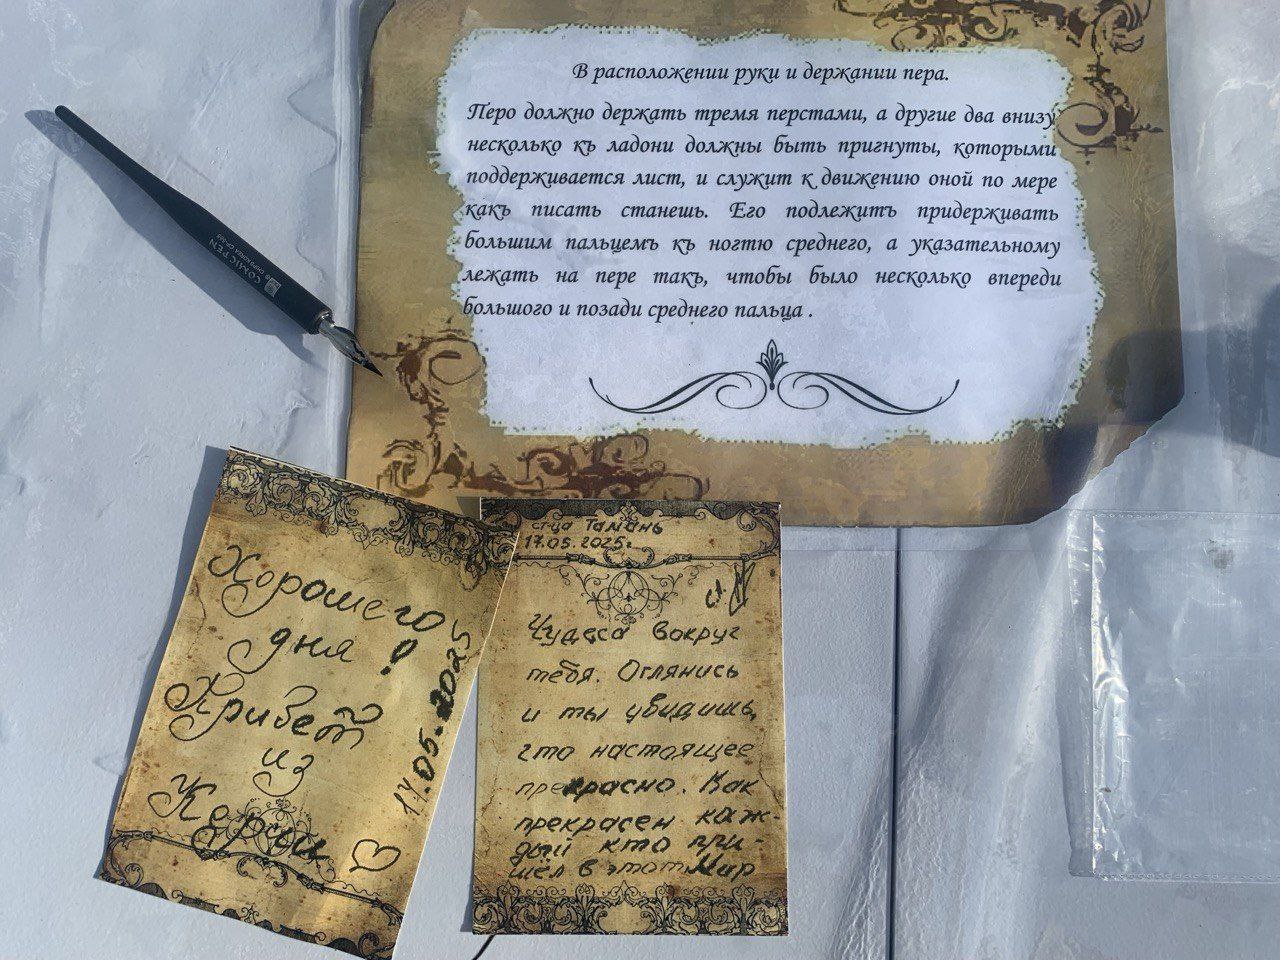 В расположении руки и держании пера.
Перо должно держать тремя перстами, а другие два внизу
несколько къ ладони должны быть пригнуты, которыми
поддерживается лист, и служит к движению оной по мере
какъ писать станешь. Его подлежитъ придерживать
большим пальцемъ къ ногтю среднего, а указательному
лежать на пере такъ, чтобы было несколько впереди
большого и позади среднего пальца .
COMIC PEN
Хорошего
дня!
Привет
из
Керчи
17.05.2025
ст-ца Тамань
17.05.2025г.
Чудеса вокруг
тебя. Оглянись
и ты увидишь,
что настоящее
прекрасно. Как
прекрасен каж-
дый кто при-
шёл в этот Мир